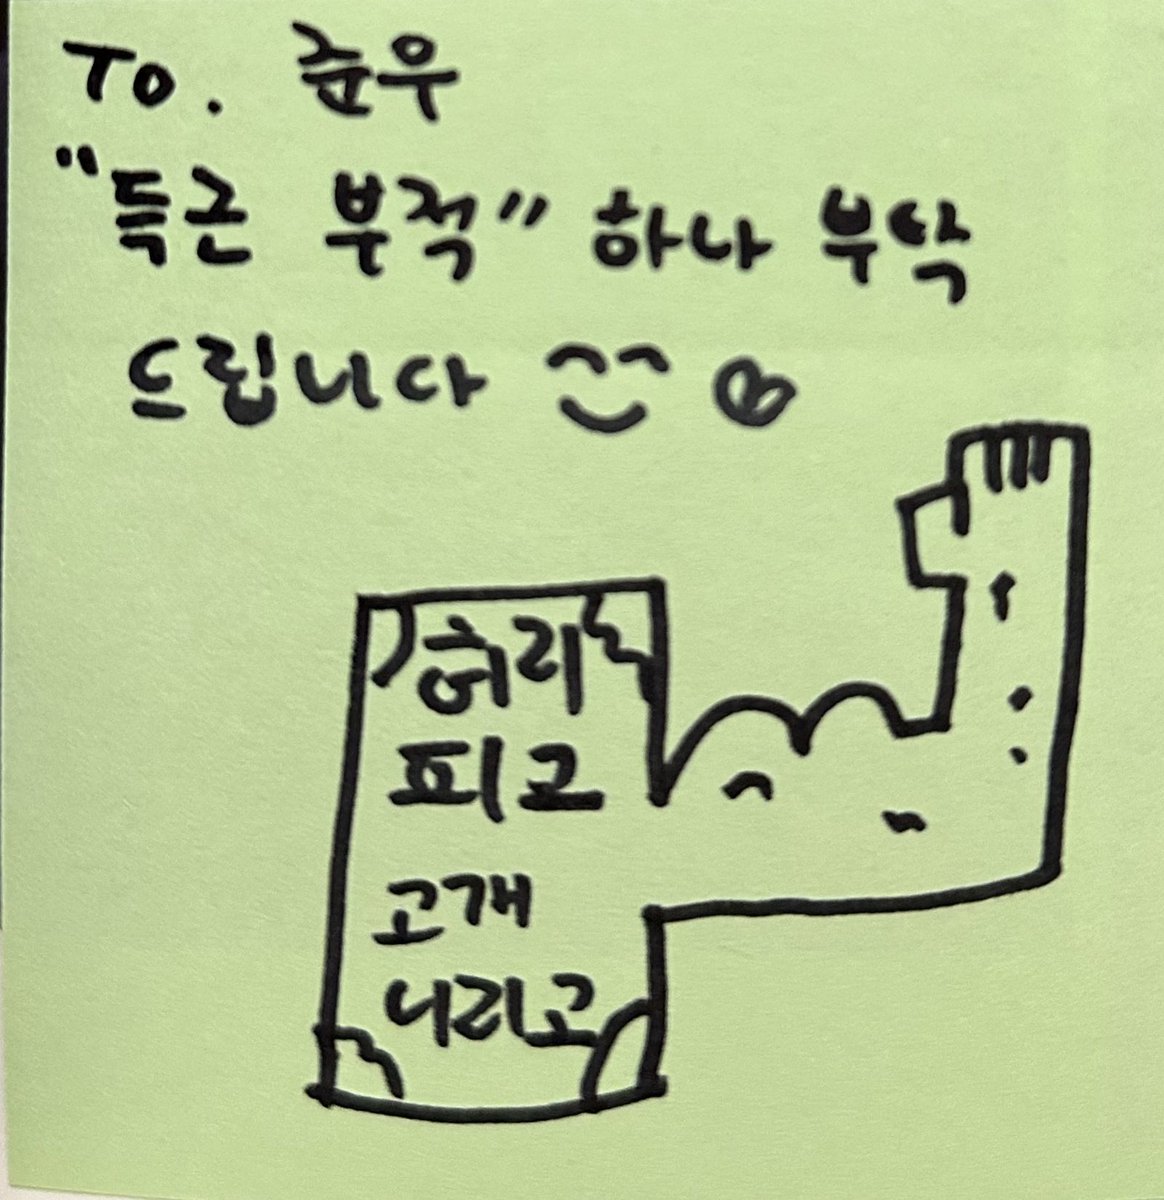 To. 준우
"득근 부적" 하나 부탁
드립니다
허리
피고
고개
니리고